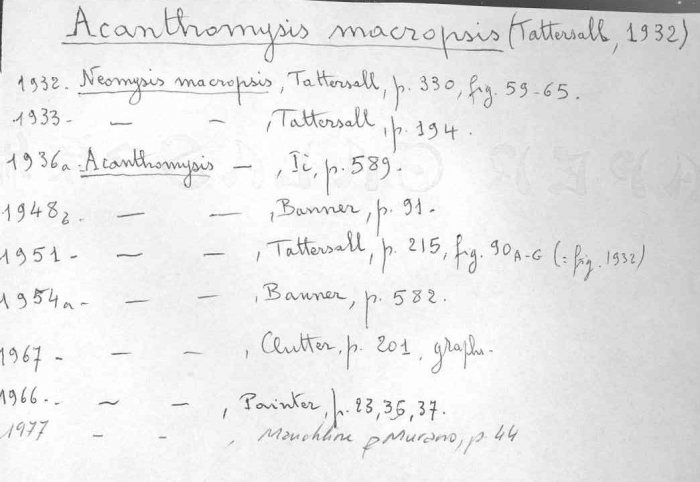 Acanthomysis macropsis (Tattersall, 1932)
1932. Neomysis macropsis, Tattersall, p. 330, fig. 59-65.
1933- — — , Tattersall, p. 194.
1936a - Acanthomysis — , Ii, p. 589.
1948b. — — , Banner, p. 91.
1951 - — — , Tattersall, p. 215, fig. 90A-G (= fig. 1932)
1954a- — — , Banner, p. 582.
1967 - — — , Clutter, p. 201, graph.
1966.- — — , Painter, p. 23, 36, 37.
1977 - - , Mauchline & Murano, p. 44